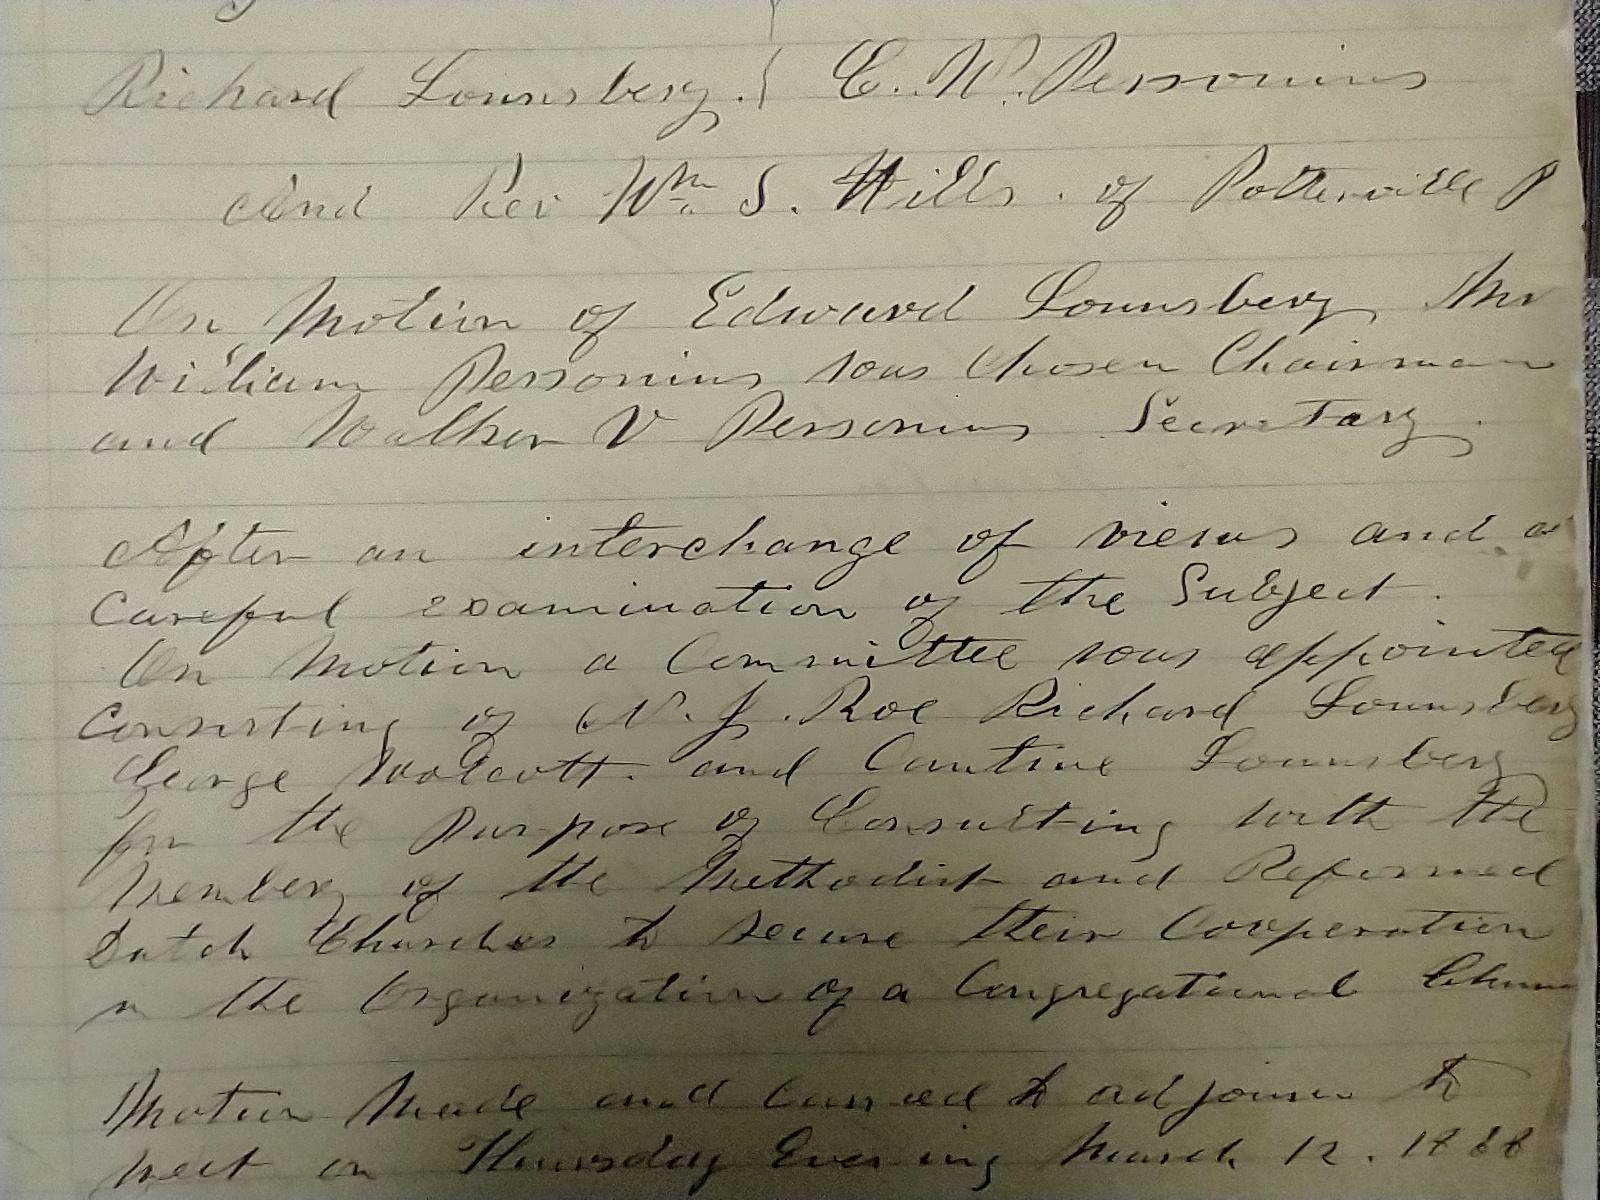 Richard Lounsbery. } C. W. Personius
And Rev Wm S. Hills. of Potterville P
On Motion of Edward Lounsbery Mr
William Personius was Chosen Chairman
and Walker V Personius Secretary.
After an interchange of views and a
Careful examination of the Subject.
On Motion a Committee was appointed
Consisting of N. J. Roe Richard Lounsbery
George Wolcott. and Cantine Lounsbery
for the Purpose of Consulting with the
Members of the Methodist and Reformed
Dutch Churches to secure their Cooperation
in the Organization of a Congregational
Motion Made and Carried to adjourn to
meet on Thursday Evening March 12. 1868